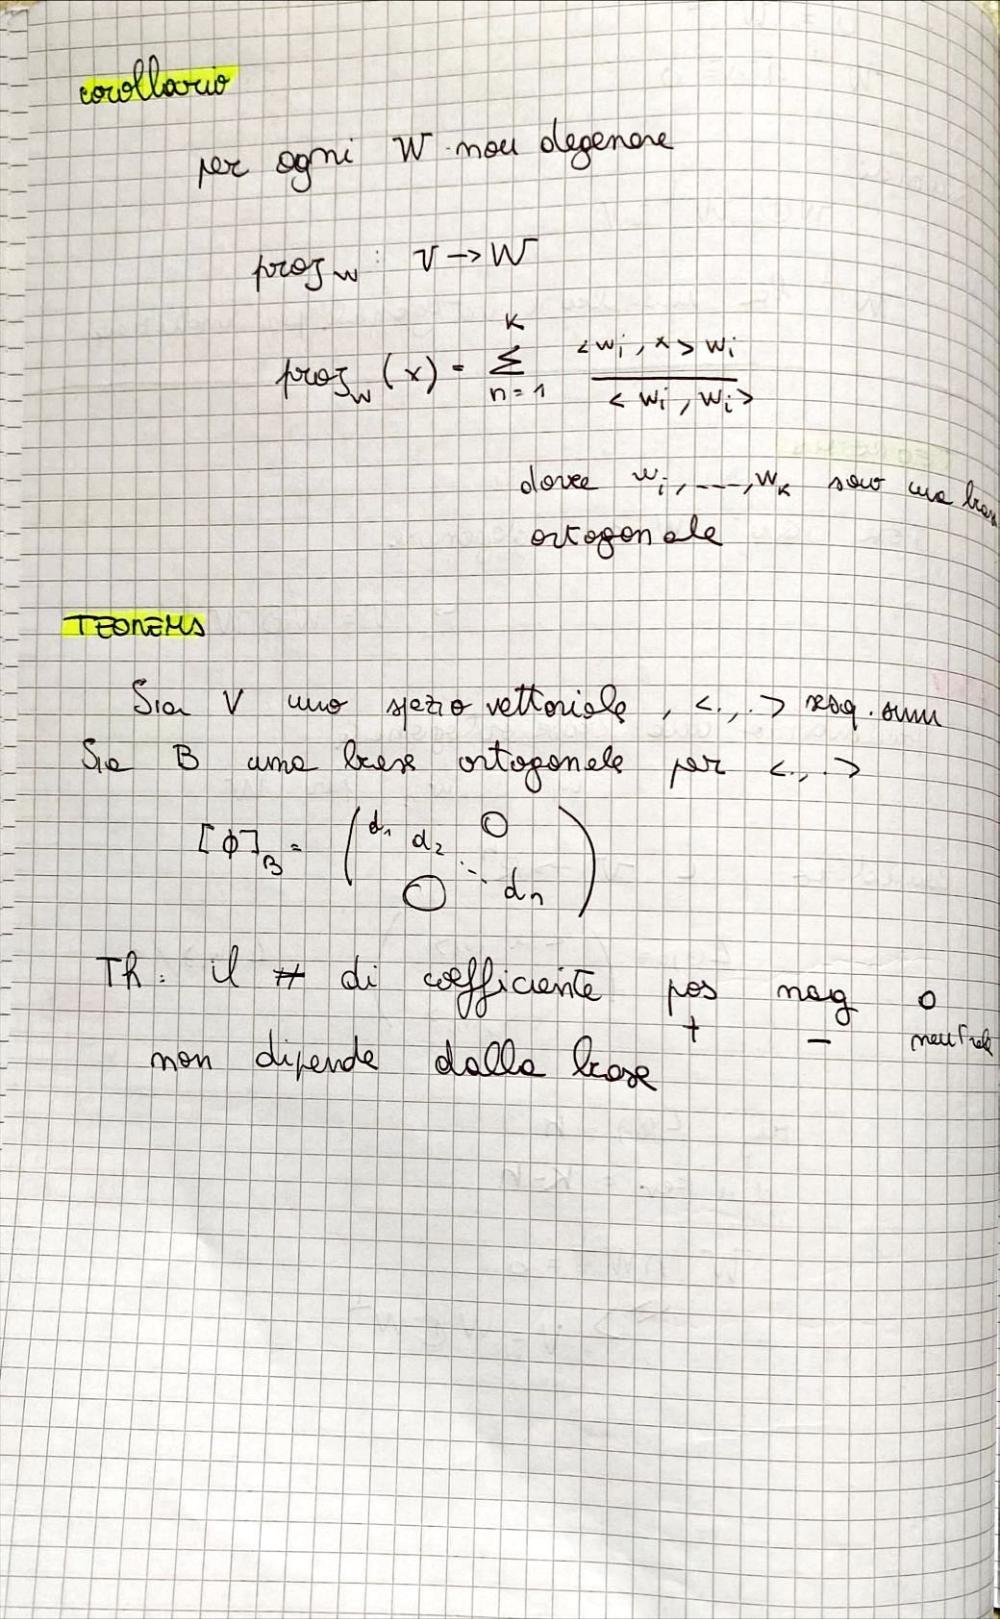 corollario
per ogni W non degenere
proj_W : V → W
proj_W (x) = Σ_{n=1}^{K} <w_i, x> w_i / <w_i, w_i>
dove w_i, ---, w_k sono una base
ortogonale
TEOREMA
Sia V uno spazio vettoriale, <.,.>
Sia B una base ortogonale per <.,.>
[φ]_B = ( d_1 d_2 ⋱ d_n O O )
Th: il # di coefficiente pos neg 0
+ - neutrale
non dipende dalla base